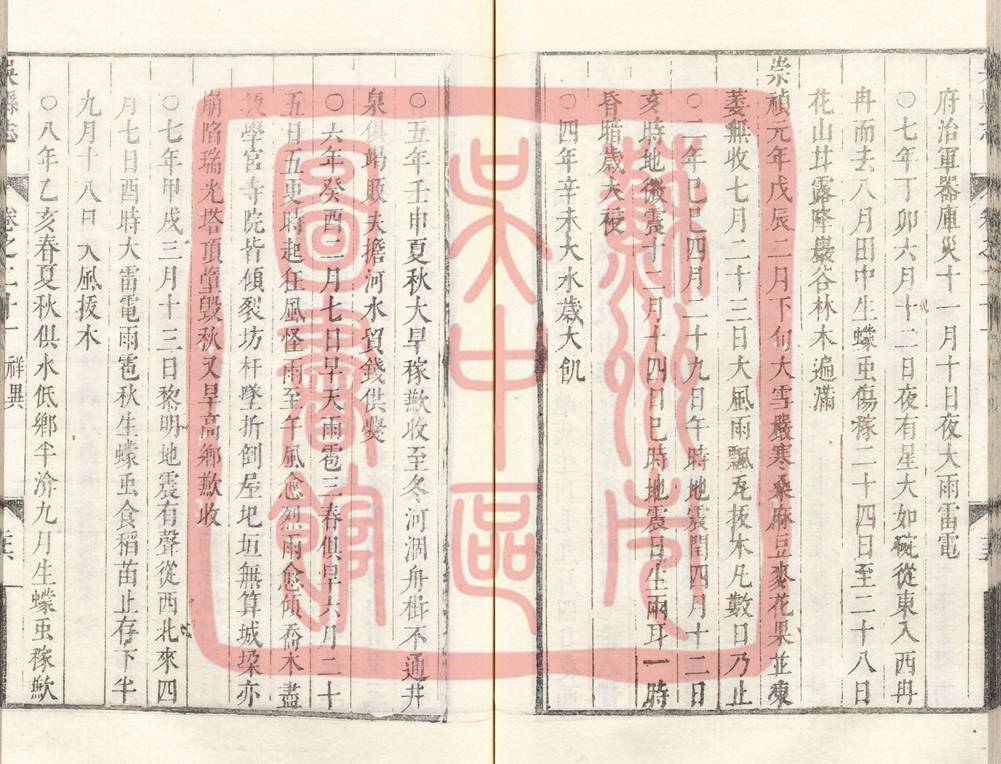 府治軍器庫災十一月十日夜大雨雷電
○七年丁卯六月十二日夜有星大如碗從東入西冉
冉而去八月田中生蠓䖝傷稼二十四日至二十八日
花山甘露降巖谷林木遍滿
崇禎元年戊辰二月下旬大雪嚴寒桑麻豆麥花果並凍
萎無收七月二十三日大風雨飄瓦拔木凡數日乃止
○二年己巳四月二十九日午時地震閏四月十二日
亥時地微震十二月十四日巳時地震日生兩耳一時
昏暗歲大祲
○四年辛未大水歲大飢
○五年壬申夏秋大旱稼歉收至冬河涸舟楫不通井
泉俱竭販夫擔河水貿錢供爨
○六年癸酉二月七日早天雨雹三春俱旱六月二十
五日五更時起狂風怪雨至午風愈烈雨愈傾喬木盡
拔學宮寺院皆傾裂坊杆墜折倒屋圯垣無算城垜亦
崩陷瑞光塔頂墮毀秋又旱高鄉歉收
○七年甲戌三月十三日黎明地震有聲從西北來四
月七日酉時大雷電雨雹秋生蠓䖝食稻苗止存下半
九月十八日大風拔木
○八年乙亥春夏秋俱水低鄉半渰九月生蠓䖝稼歉
吳縣志
卷之十一
祥異
蘇州市
吳中區
圖書館